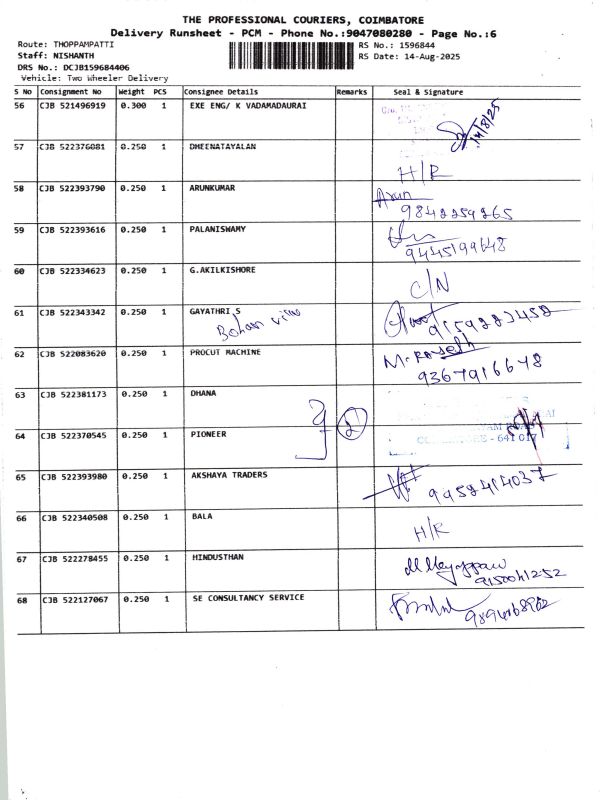 THE PROFESSIONAL COURIERS, COIMBATORE
Delivery Runsheet - PCM - Phone No.:9047080280 - Page No.:6
Route: THOPPAMPATTI
RS No.: 1596844
Staff: NISHANTH
RS Date: 14-Aug-2025
DRS No.: DCJB159684406
Vehicle: Two Wheeler Delivery
S No Consignment No Weight PCS Consignee Details Remarks Seal & Signature
56 CJB 521496919 0.300 1 EXE ENG/ K VADAMADAURAI
14/8/25
57 CJB 522376081 0.250 1 DHEENATAYALAN
H/R
58 CJB 522393790 0.250 1 ARUNKUMAR
Arun
9842259265
59 CJB 522393616 0.250 1 PALANISWAMY
9445199648
60 CJB 522334623 0.250 1 G.AKILKISHORE
C/N
61 CJB 522343342 0.250 1 GAYATHRI S
62 CJB 522083620 0.250 1 PROCUT MACHINE
9367916678
63 CJB 522381173 0.250 1 DHANA
2
64 CJB 522370545 0.250 1 PIONEER
641 017
65 CJB 522393980 0.250 1 AKSHAYA TRADERS
9952414037
66 CJB 522340508 0.250 1 BALA
H/R
67 CJB 522278455 0.250 1 HINDUSTHAN
68 CJB 522127067 0.250 1 SE CONSULTANCY SERVICE